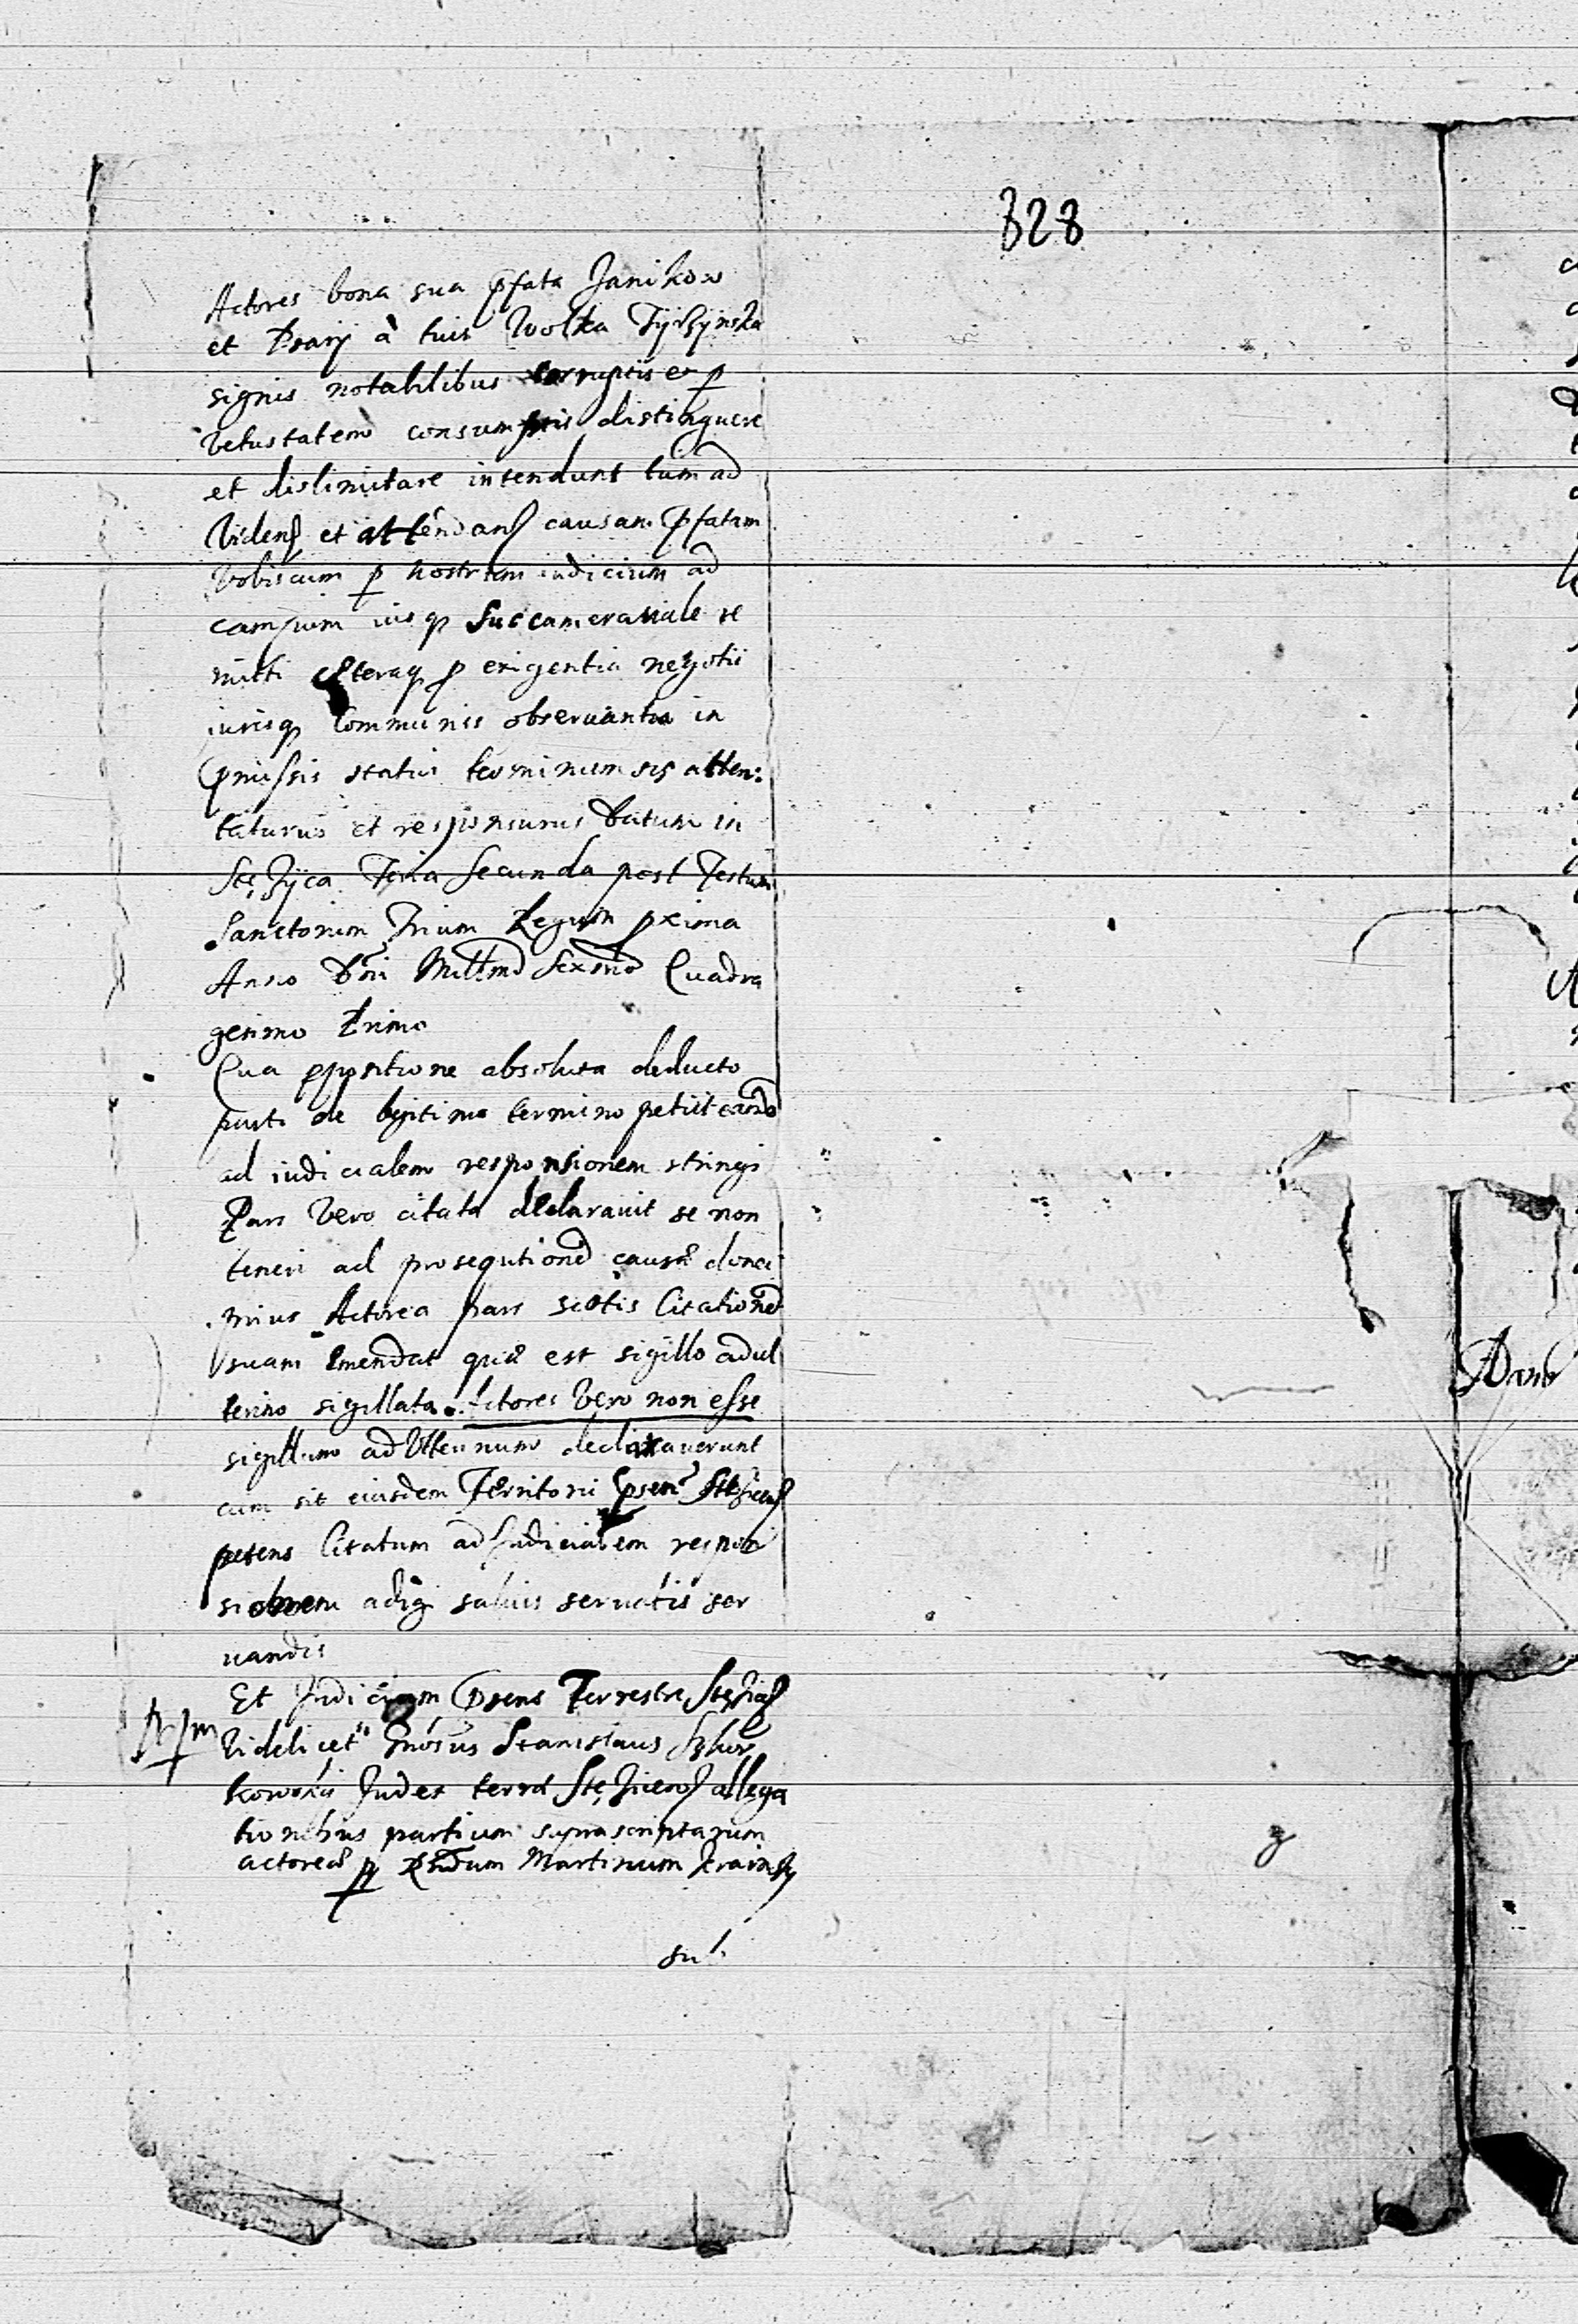 328
Actores bona sua pfata Janikow
et Prazy à tuis Wolka Tyrzynska
signis notabilibus corruptis et p
vetustatem consumptis distinguere
et dislimitare intendunt tum ad
videnꝭ et attendanꝭ causam pfatam
vobiscum p nostrum iudicium ad
campum iusqꝫ Succamerariale re
mitti cęteraqꝫ p exigentia negotii
iurisqꝫ Communis obseruantia in
pmissis statui terminum sis atten:
taturus et responsurus Datum in
Stężyca Feria Secunda post Festum
Sanctorum Trium Regum pxima
Anno Dni Millmo Sexmo Quadra
gesimo Primo
Qua ppositione absoluta deducto
parti de legitimo termino petiit eando
ad iudicialem responsionem stringi
Pars Vero citata declarauit se non
teneri ad prosequtione causæ donec
prius Actorea pars Citatione
suam emendat quia est sigillo adul
terino sigillata. Actores Vero non esse
sigillum adulterinum declarauerunt
cum sit eiusdem Territorii psenꝭ Stęzicenꝭ
petens Citatum ad Judicialem respon
sionem adigi saluis seruatis ser
uandis
Et Judicium psens Terrestre Stęzicenꝭ
Videlicet Gnosus Stanislaus
Judex terræ Stęzicenꝭ allega
tionibus partium suprascriptarum
actoreæ p Martinum
sub